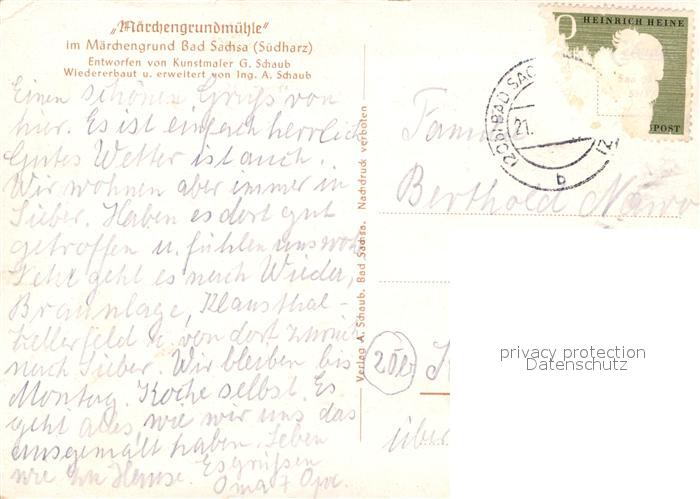 „Märchengrundmühle"
im Märchengrund Bad Sachsa (Südharz)
Entworfen von Kunstmaler G. Schaub
Wiedererbaut u. erweitert von Ing. A. Schaub
Einen schönen Gruß von
hier. Es ist einfach herrlich
Gutes Wetter ist auch.
Wir wohnen aber immer in
Sieber. Haben es dort gut
getroffen u. fühlen uns wohl
Jetzt geht es nach Wieda,
Braunlage, Klausthal-
Zellerfeld u. von dort zurück
nach Sieber. Wir bleiben bis
Montag. Koche selbst. Es
geht alles, wie wir uns das
ausgemalt haben. Leben
wie zu Hause. Es grüßen
Oma + Opa.
Verlag A. Schaub. Bad Sachsa. Nachdruck verboten
HEINRICH HEINE
POST
(20b) BAD SAC
21.
b
Familie
Berthold
20b
über
privacy protection
Datenschutz